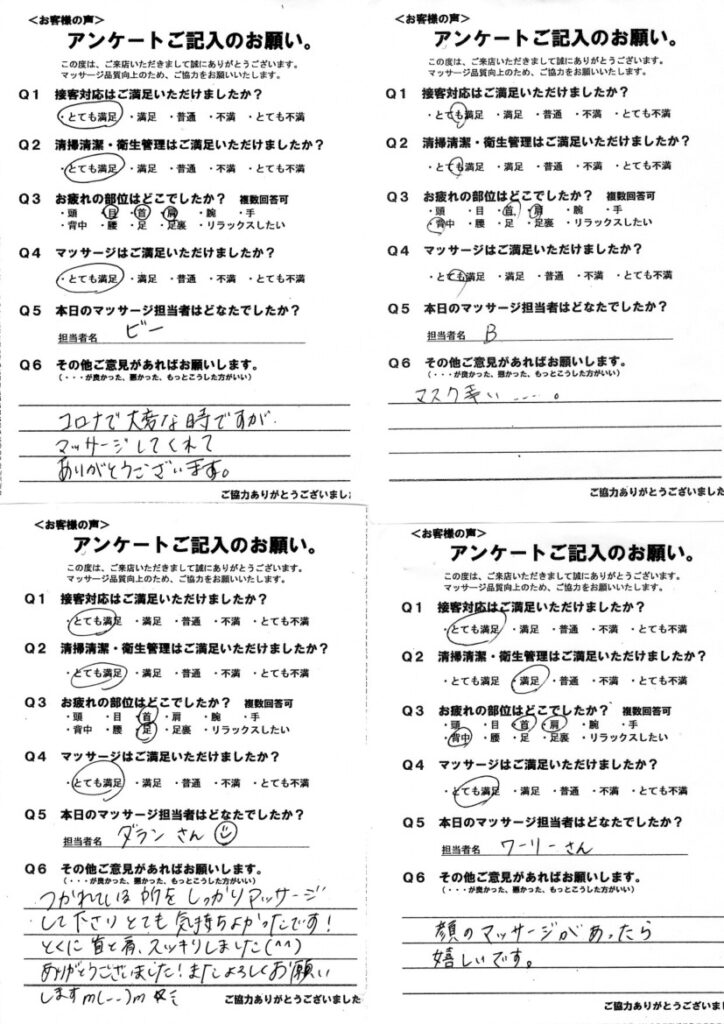 ＜お客様の声＞
アンケートご記入のお願い。
この度は、ご来店いただきまして誠にありがとうございます。
マッサージ品質向上のため、ご協力をお願いいたします。
Q1 接客対応はご満足いただけましたか？
・とても満足 ・満足 ・普通 ・不満 ・とても不満
Q2 清掃清潔・衛生管理はご満足いただけましたか？
・とても満足 ・満足 ・普通 ・不満 ・とても不満
Q3 お疲れの部位はどこでしたか？ 複数回答可
・頭 ・目 ・首 ・肩 ・腕 ・手
・背中 ・腰 ・足 ・足裏 ・リラックスしたい
Q4 マッサージはご満足いただけましたか？
・とても満足 ・満足 ・普通 ・不満 ・とても不満
Q5 本日のマッサージ担当者はどなたでしたか？
担当者名 ビー
Q6 その他ご意見があればお願いします。
（・・・が良かった、悪かった、もっとこうした方がいい）
コロナで大変な時ですが
マッサージしてくれて
ありがとうございます。
ご協力ありがとうございまし
＜お客様の声＞
アンケートご記入のお願い。
この度は、ご来店いただきまして誠にありがとうございます。
マッサージ品質向上のため、ご協力をお願いいたします。
Q1 接客対応はご満足いただけましたか？
・とても満足 ・満足 ・普通 ・不満 ・とても不満
Q2 清掃清潔・衛生管理はご満足いただけましたか？
・とても満足 ・満足 ・普通 ・不満 ・とても不満
Q3 お疲れの部位はどこでしたか？ 複数回答可
・頭 ・目 ・首 ・肩 ・腕 ・手
・背中 ・腰 ・足 ・足裏 ・リラックスしたい
Q4 マッサージはご満足いただけましたか？
・とても満足 ・満足 ・普通 ・不満 ・とても不満
Q5 本日のマッサージ担当者はどなたでしたか？
担当者名 B
Q6 その他ご意見があればお願いします。
（・・・が良かった、悪かった、もっとこうした方がいい）
マスク ....。
ご協力ありがとうございました
＜お客様の声＞
アンケートご記入のお願い。
この度は、ご来店いただきまして誠にありがとうございます。
マッサージ品質向上のため、ご協力をお願いいたします。
Q1 接客対応はご満足いただけましたか？
・とても満足 ・満足 ・普通 ・不満 ・とても不満
Q2 清掃清潔・衛生管理はご満足いただけましたか？
・とても満足 ・満足 ・普通 ・不満 ・とても不満
Q3 お疲れの部位はどこでしたか？ 複数回答可
・頭 ・目 ・首 ・肩 ・腕 ・手
・背中 ・腰 ・足 ・足裏 ・リラックスしたい
Q4 マッサージはご満足いただけましたか？
・とても満足 ・満足 ・普通 ・不満 ・とても不満
Q5 本日のマッサージ担当者はどなたでしたか？
担当者名 ダランさん
Q6 その他ご意見があればお願いします。
（・・・が良かった、悪かった、もっとこうした方がいい）
つかれている所をしっかりマッサージ
して下さりとても気持ちよかったです！
とくに首と肩、スッキリしました(^^)
ありがとうございました！またよろしくお願い
しますm(--)m
ご協力ありがとうございました
＜お客様の声＞
アンケートご記入のお願い。
この度は、ご来店いただきまして誠にありがとうございます。
マッサージ品質向上のため、ご協力をお願いいたします。
Q1 接客対応はご満足いただけましたか？
・とても満足 ・満足 ・普通 ・不満 ・とても不満
Q2 清掃清潔・衛生管理はご満足いただけましたか？
・とても満足 ・満足 ・普通 ・不満 ・とても不満
Q3 お疲れの部位はどこでしたか？ 複数回答可
・頭 ・目 ・首 ・肩 ・腕 ・手
・背中 ・腰 ・足 ・足裏 ・リラックスしたい
Q4 マッサージはご満足いただけましたか？
・とても満足 ・満足 ・普通 ・不満 ・とても不満
Q5 本日のマッサージ担当者はどなたでしたか？
担当者名 ワーリーさん
Q6 その他ご意見があればお願いします。
（・・・が良かった、悪かった、もっとこうした方がいい）
顔のマッサージがあったら
嬉しいです。
ご協力ありがとうございました